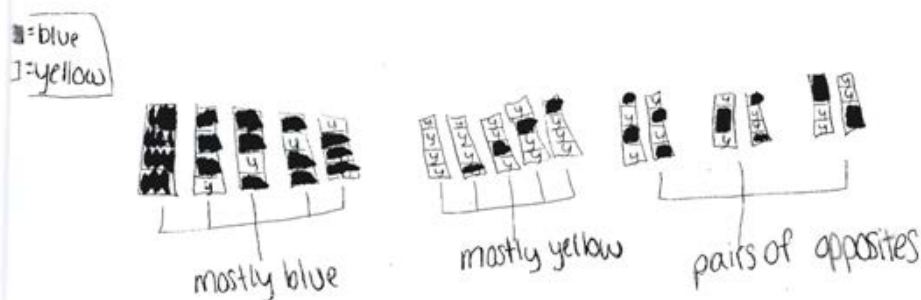 =blue
=yellow
y
y
y
y
mostly blue
mostly yellow
pairs of opposites